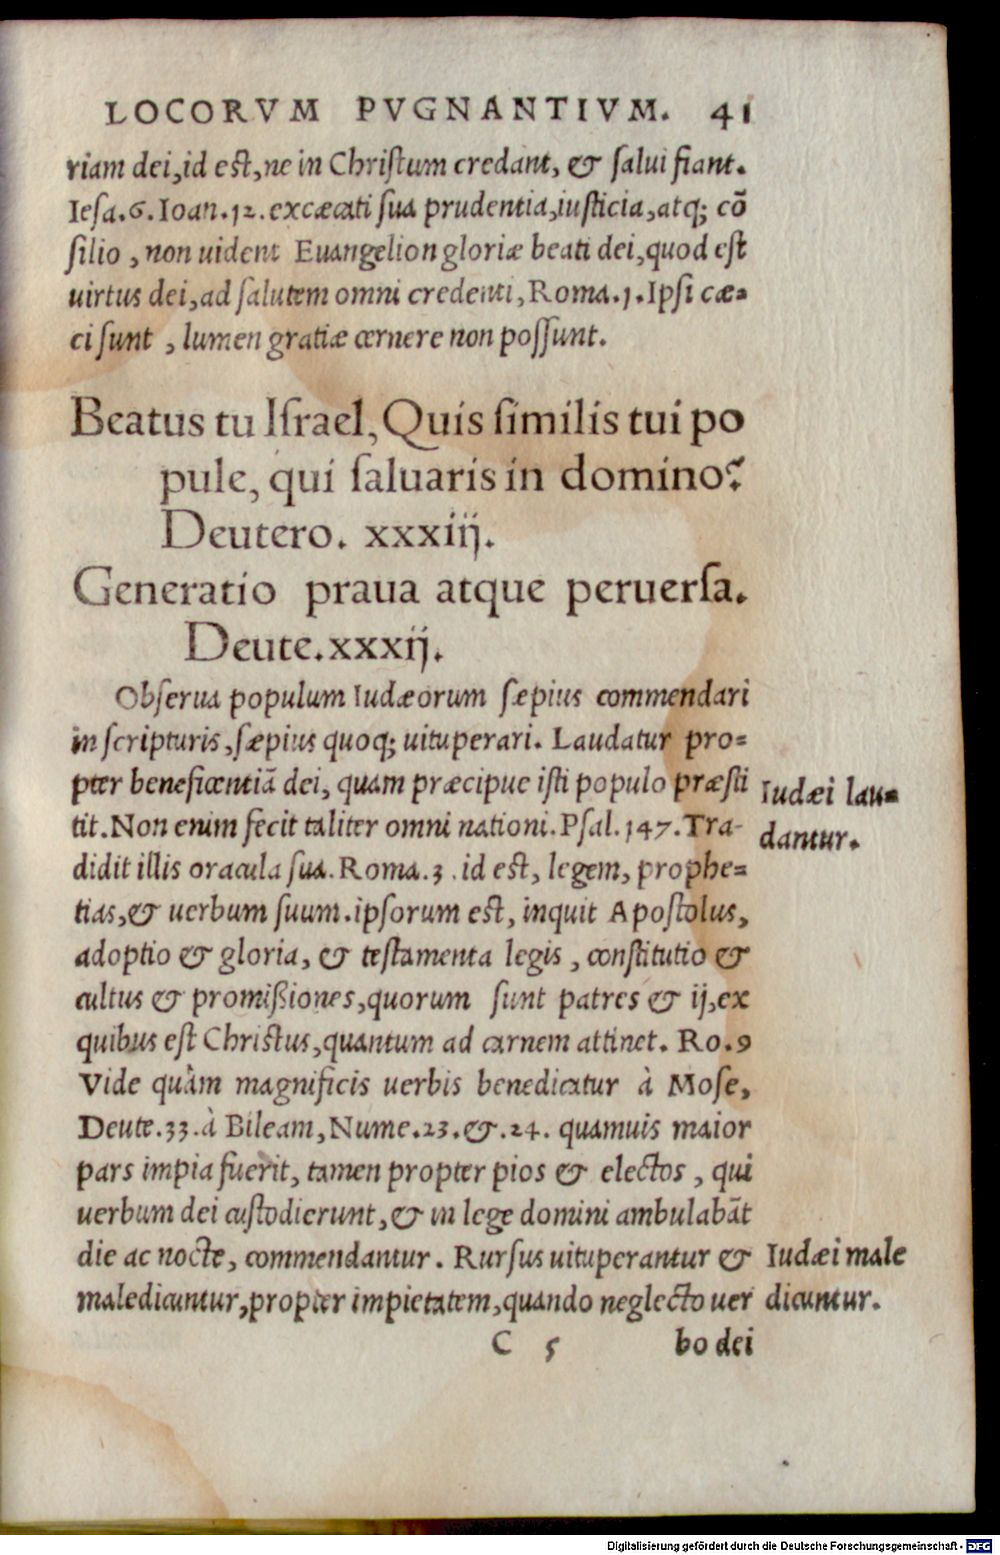 LOCORVM PVGNANTIVM. 41
riam dei, id est, ne in Christum credant, & salui fiant.
Iesa.6. Ioan.12. excæcati sua prudentia, iusticia, atq; cō
silio, non uident Euangelion gloriæ beati dei, quod est
uirtus dei, ad salutem omni credenti, Roma.1. Ipsi cæ=
ci sunt, lumen gratiæ cernere non possunt.
Beatus tu Israel, Quis similis tui po
pule, qui saluaris in domino?
Deutero. xxxiij.
Generatio praua atque peruersa.
Deute.xxxij.
Obserua populum Iudæorum sæpius commendari
in scripturis, sæpius quoq; uituperari. Laudatur pro=
pter beneficentiā dei, quam præcipue isti populo præsti
tit. Non enim fecit taliter omni nationi. Psal.147. Tra-
didit illis oracula sua. Roma.3. id est, legem, prophe=
tias, & uerbum suum. ipsorum est, inquit Apostolus,
adoptio & gloria, & testamenta legis, constitutio &
cultus & promißiones, quorum sunt patres & ij, ex
quibus est Christus, quantum ad carnem attinet. Ro.9
Vide quàm magnificis uerbis benedicatur à Mose,
Deute.33. à Bileam, Nume.23.&.24. quamuis maior
pars impia fuerit, tamen propter pios & electos, qui
uerbum dei custodierunt, & in lege domini ambulabāt
die ac nocte, commendantur. Rursus uituperantur &
maledicuntur, propter impietatem, quando neglecto uer
C 5 bo dei
Iudæi lau=
dantur.
Iudæi male
dicuntur.
Digitalisierung gefördert durch die Deutsche Forschungsgemeinschaft - DFG